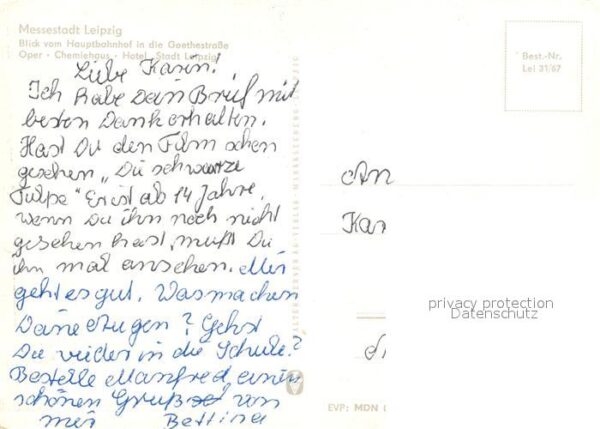 Messestadt Leipzig
Blick vom Hauptbahnhof in die Goethestraße
Oper · Chemiehaus · Hotel „Stadt Leipzig“
Best.-Nr.
Lei 31/67
Liebe Karin!
Ich habe Dein Brief mit
besten Dank erhalten.
Hast Du den Film schon
gesehen „Die schwarze
Tulpe“ Er ist ab 14 Jahre,
wenn Du ihn noch nicht
gesehen hast, mußt Du
ihn mal ansehen. Mir
geht es gut. Was machen
Deine Augen? Gehst
Du wieder in die Schule?
Bestelle Manfred einen
schönen Gruß von
mir Bettina
An
Kar
privacy protection
Datenschutz
EVP: MDN